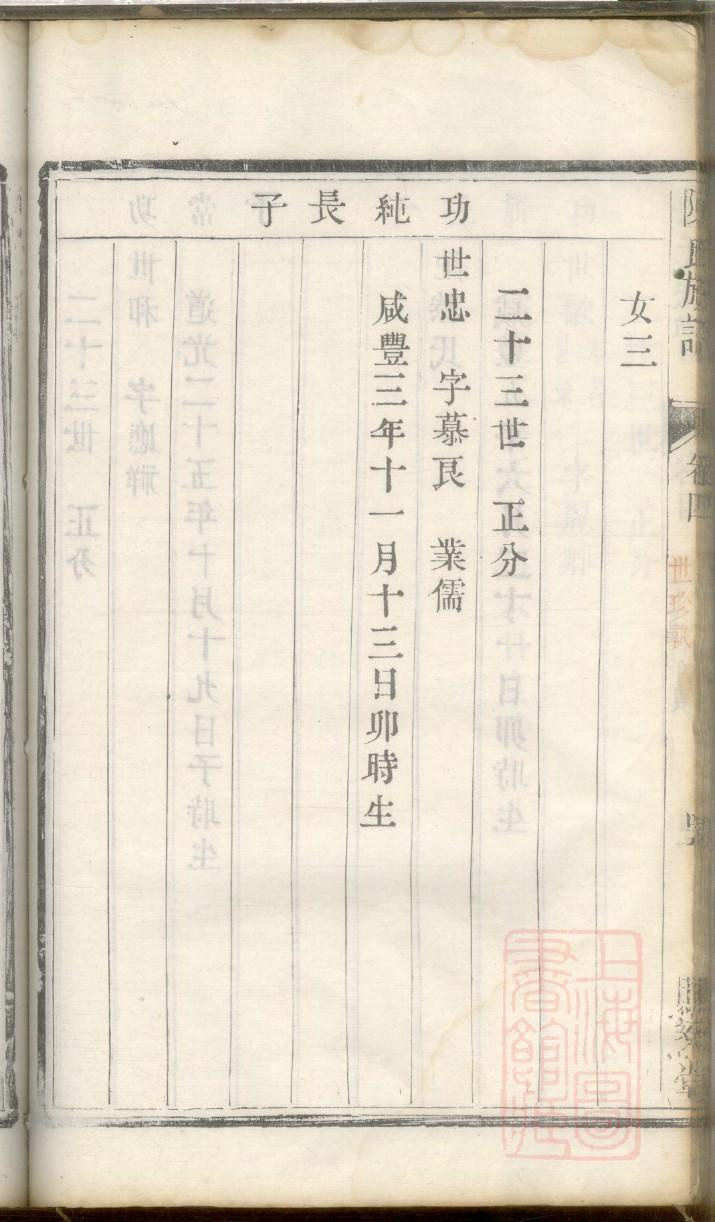 陳氏族譜
卷四
世珍執
女三
二十三世 正分
功純長子
世忠 字慕良 業儒
咸豐三年十一月十三日卯時生
上海圖
書館藏